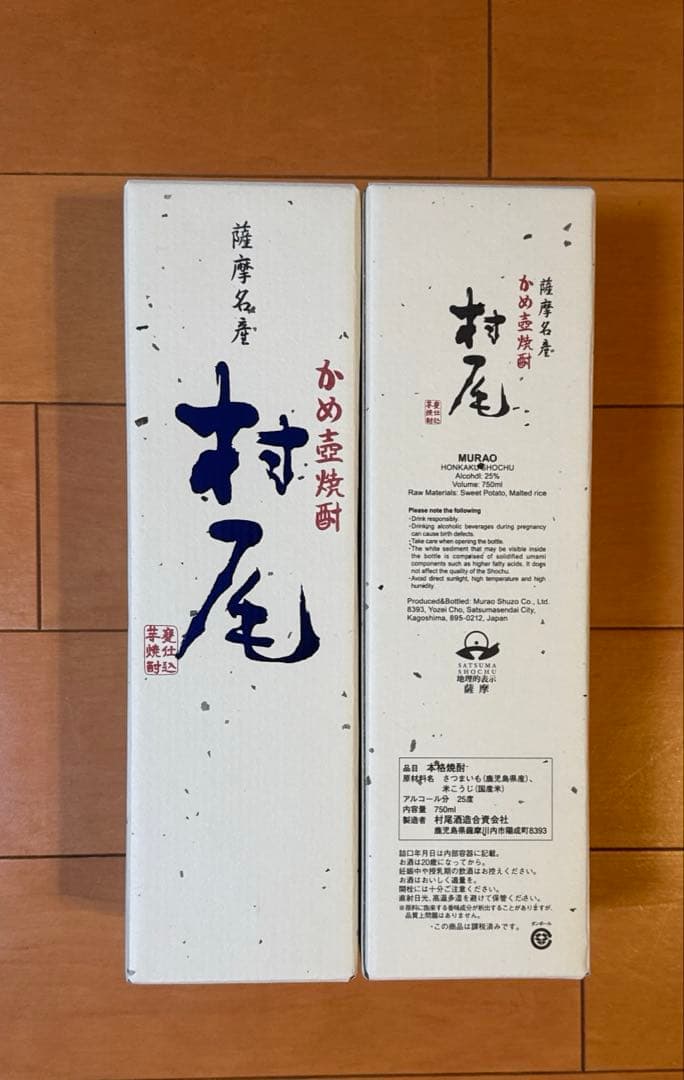 薩摩名産
かめ壺焼酎
村尾
甕仕込
芋焼酎
薩摩名産
かめ壺焼酎
村尾
甕仕込
芋焼酎
MURAO
HONKAKU SHOCHU
Alcohol: 25%
Volume: 750ml
Raw Materials: Sweet Potato, Malted rice
Please note the following
-Drink responsibly.
-Drinking alcoholic beverages during pregnancy
can cause birth defects.
-Take care when opening the bottle.
-The white sediment that may be visible inside
the bottle is comprised of solidified umami
components such as higher fatty acids. It does
not affect the quality of the Shochu.
-Avoid direct sunlight, high temperature and high
humidity.
Produced&Bottled: Murao Shuzo Co., Ltd.
8393, Yozei Cho, Satsumasendai City,
Kagoshima, 895-0212, Japan
SATSUMA
SHOCHU
地理的表示
薩摩
品目 本格焼酎
原材料名 さつまいも(鹿児島県産)、
米こうじ(国産米)
アルコール分 25度
内容量 750ml
製造者 村尾酒造合資会社
鹿児島県薩摩川内市陽成町8393
詰口年月日は内部容器に記載。
お酒は20歳になってから。
妊娠中や授乳期の飲酒はお控えください。
お酒はおいしく適量を。
開栓には十分ご注意ください。
直射日光、高温多湿を避けて保管ください。
※原料に由来する香味成分が析出することがありますが、
品質上問題はありません。
・この商品は課税済みです。
ダンボール